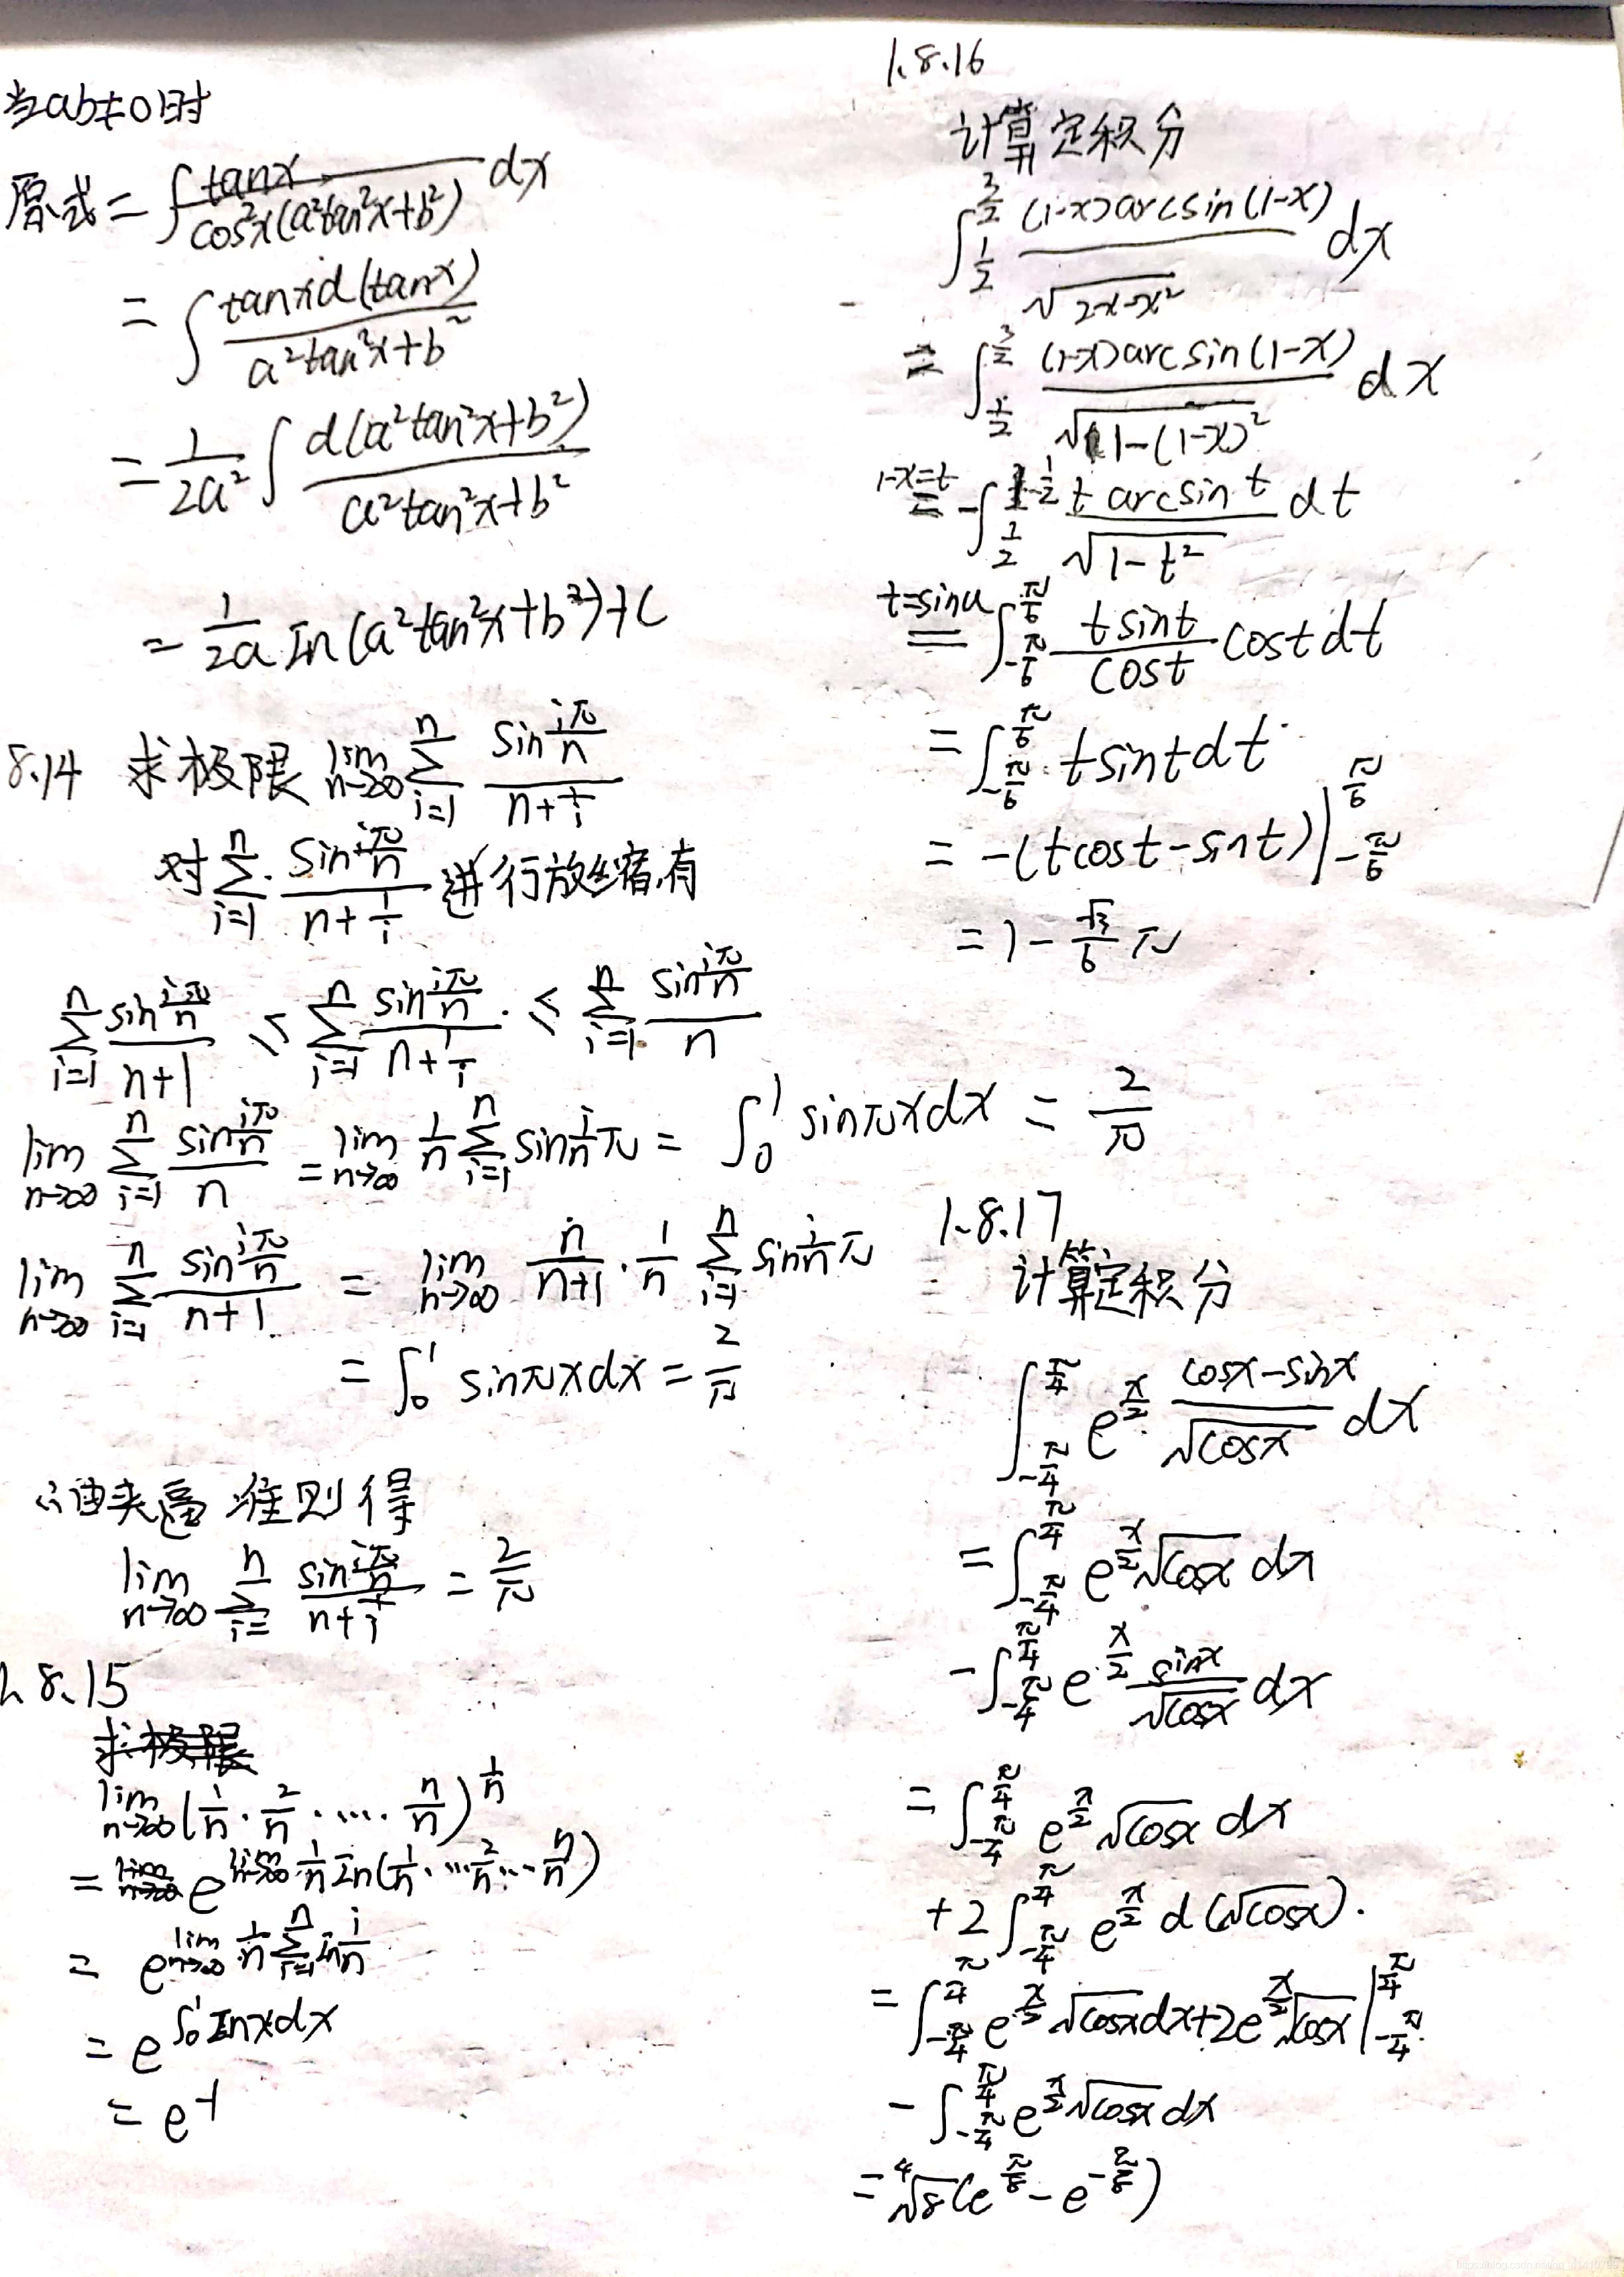 当ab≠0时
原式=∫tanx/(cos²x(a²tan²x+b²)) dx
=∫tanxd(tanx)/(a²tan²x+b²)
=1/(2a²)∫d(a²tan²x+b²)/(a²tan²x+b²)
=1/(2a) In(a²tan²x+b²)+C
8.14 求极限 lim_{n→∞} ∑_{i=1}^{n} sin(iπ/n)/(n+1/i)
对∑_{i=1}^{n} sin(iπ/n)/(n+1/i) 进行放缩,有
∑_{i=1}^{n} sin(iπ/n)/(n+1) ≤ ∑_{i=1}^{n} sin(iπ/n)/(n+1/i) ≤ ∑_{i=1}^{n} sin(iπ/n)/n
lim_{n→∞} ∑_{i=1}^{n} sin(iπ/n)/n = lim_{n→∞} 1/n ∑_{i=1}^{n} sin(i/n)π = ∫_0^1 sinπxdx = 2/π
lim_{n→∞} ∑_{i=1}^{n} sin(iπ/n)/(n+1) = lim_{n→∞} n/(n+1)·1/n ∑_{i=1}^{n} sin(i/n)π
=∫_0^1 sinπxdx=2/π
∴由夹逼准则得
lim_{n→∞} ∑_{i=}^{n} sin(iπ/n)/(n+1/i) = 2/π
1.8.15
求极限
lim_{n→∞}(1/n·2/n·…·n/n)^{1/n}
=lim_{n→∞} e^{lim_{n→∞} 1/n In(1/n·…2/n…n/n)}
=e^{lim_{n→∞} 1/n ∑_{i=1}^{n} In i/n}
=e^{∫_0^1 Inxdx}
=e^{-1}
1.8.16
计算定积分
∫_{1/2}^{3/2} (1-x)arcsin(1-x)/√(2x-x²) dx
=∫_{1/2}^{3/2} (1-x)arcsin(1-x)/√(1-(1-x)²) dx
1-x=t = -∫_{1/2}^{-1/2} t arcsin t/√(1-t²) dt
t=sinu = ∫_{-π/6}^{π/6} tsint/cost costdt
=∫_{-π/6}^{π/6} tsintdt
=-(tcost-sint)|_{-π/6}^{π/6}
=1-√3/6 π
1.8.17
计算定积分
∫_{-π/4}^{π/4} e^{x/2} (cosx-sinx)/√cosx dx
=∫_{-π/4}^{π/4} e^{x/2}√cosx dx
-∫_{-π/4}^{π/4} e^{x/2} sinx/√cosx dx
=∫_{-π/4}^{π/4} e^{x/2}√cosx dx
+2∫_{-π/4}^{π/4} e^{x/2} d(√cosx).
=∫_{-π/4}^{π/4} e^{x/2}√cosxdx+2e^{x/2}√cosx|_{-π/4}^{π/4}
-∫_{-π/4}^{π/4} e^{x/2}√cosxdx
=⁴√8(e^{π/8}-e^{-π/8})